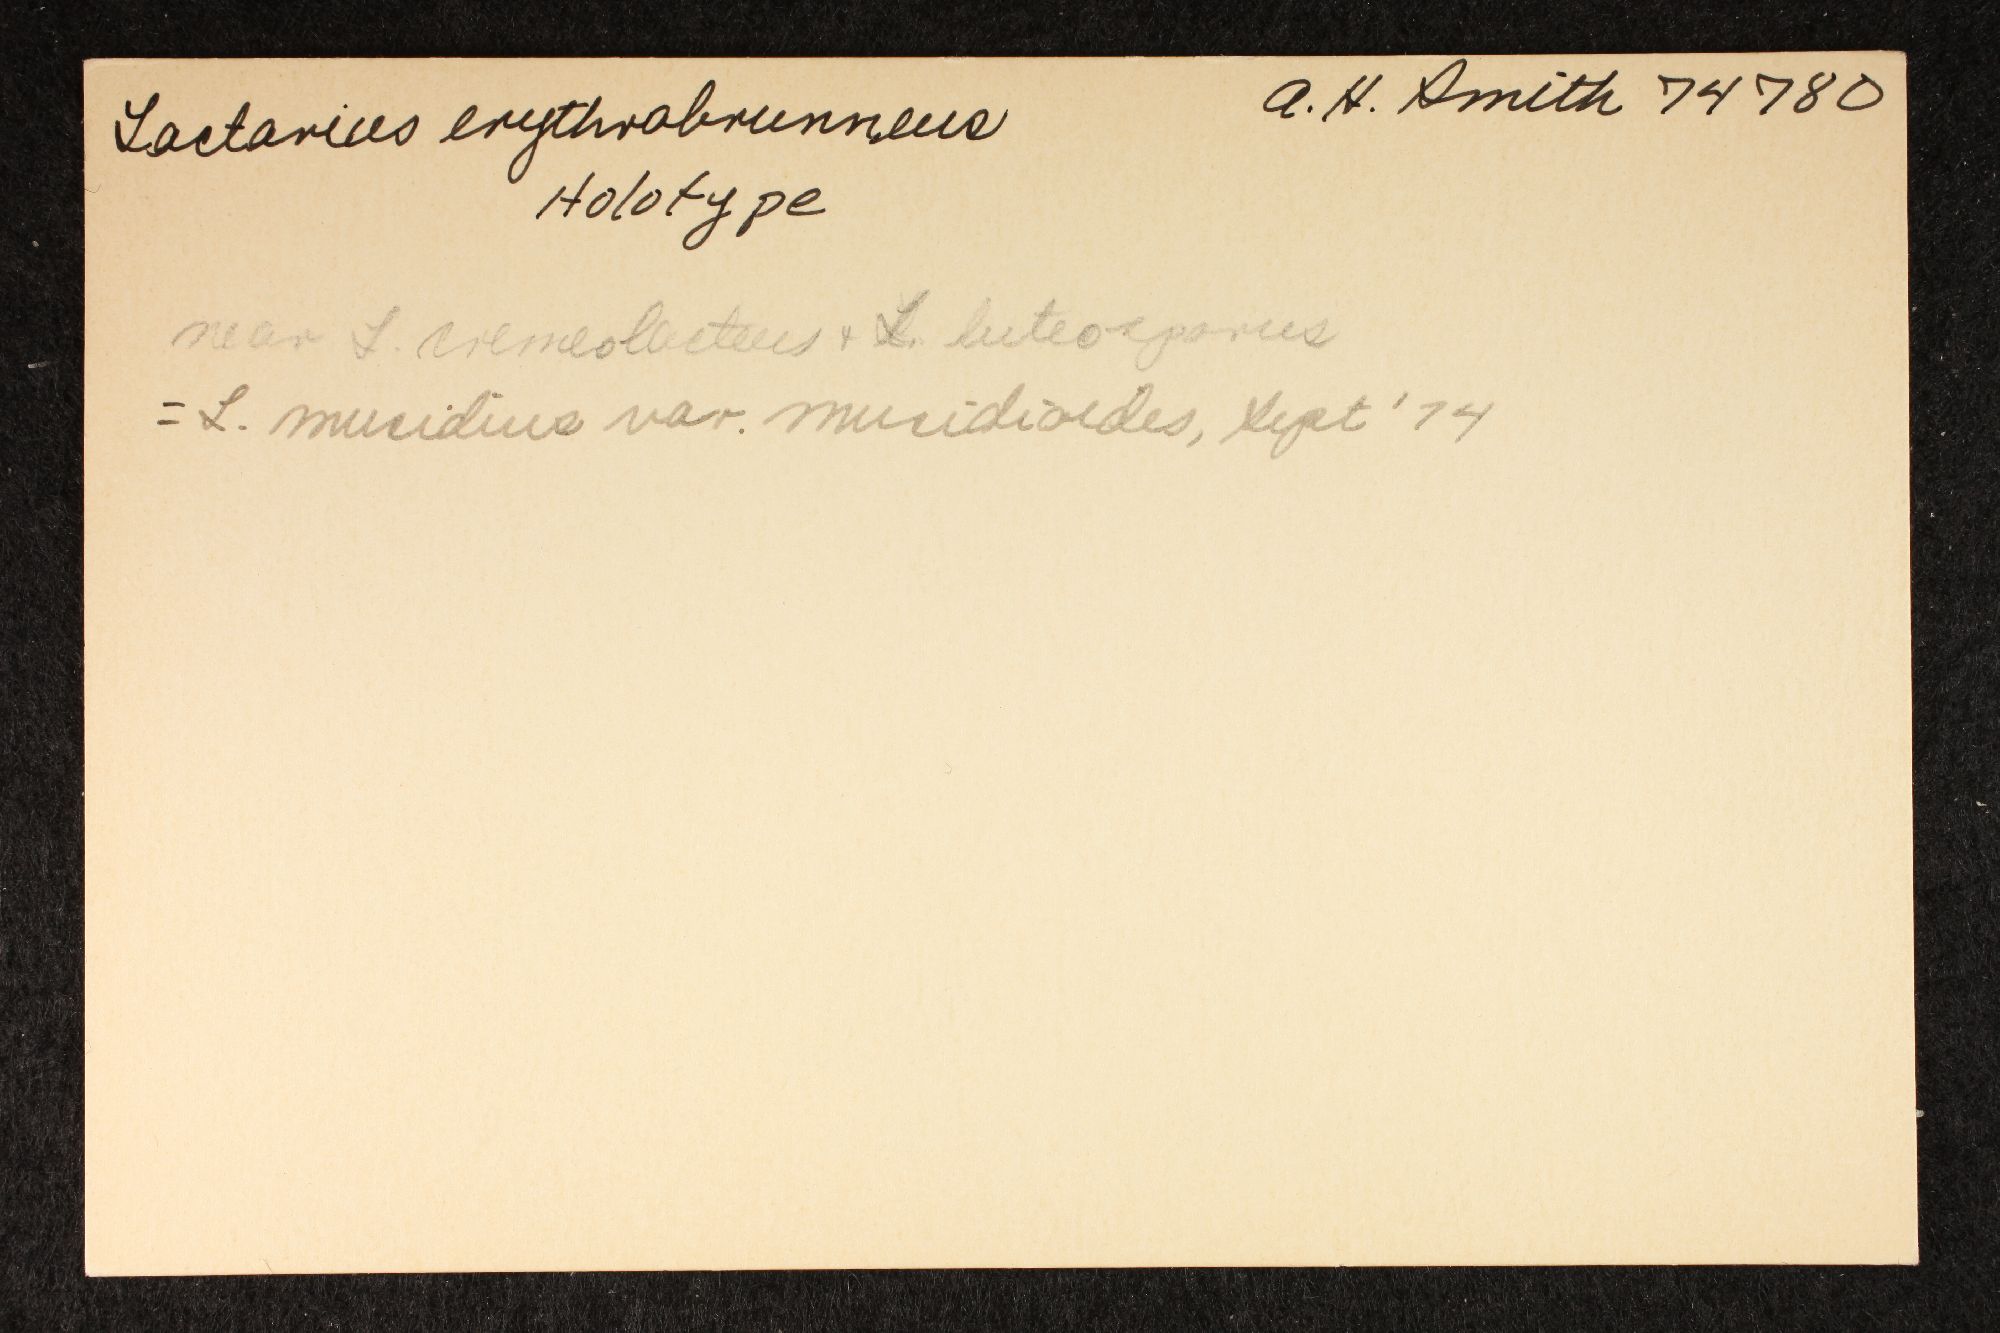 Lactarius erythrobrunneus A. H. Smith 74780
Holotype
near L. cremeolacteus + L. luteosporus
= L. mucidus var. mucidioides, Sept '74